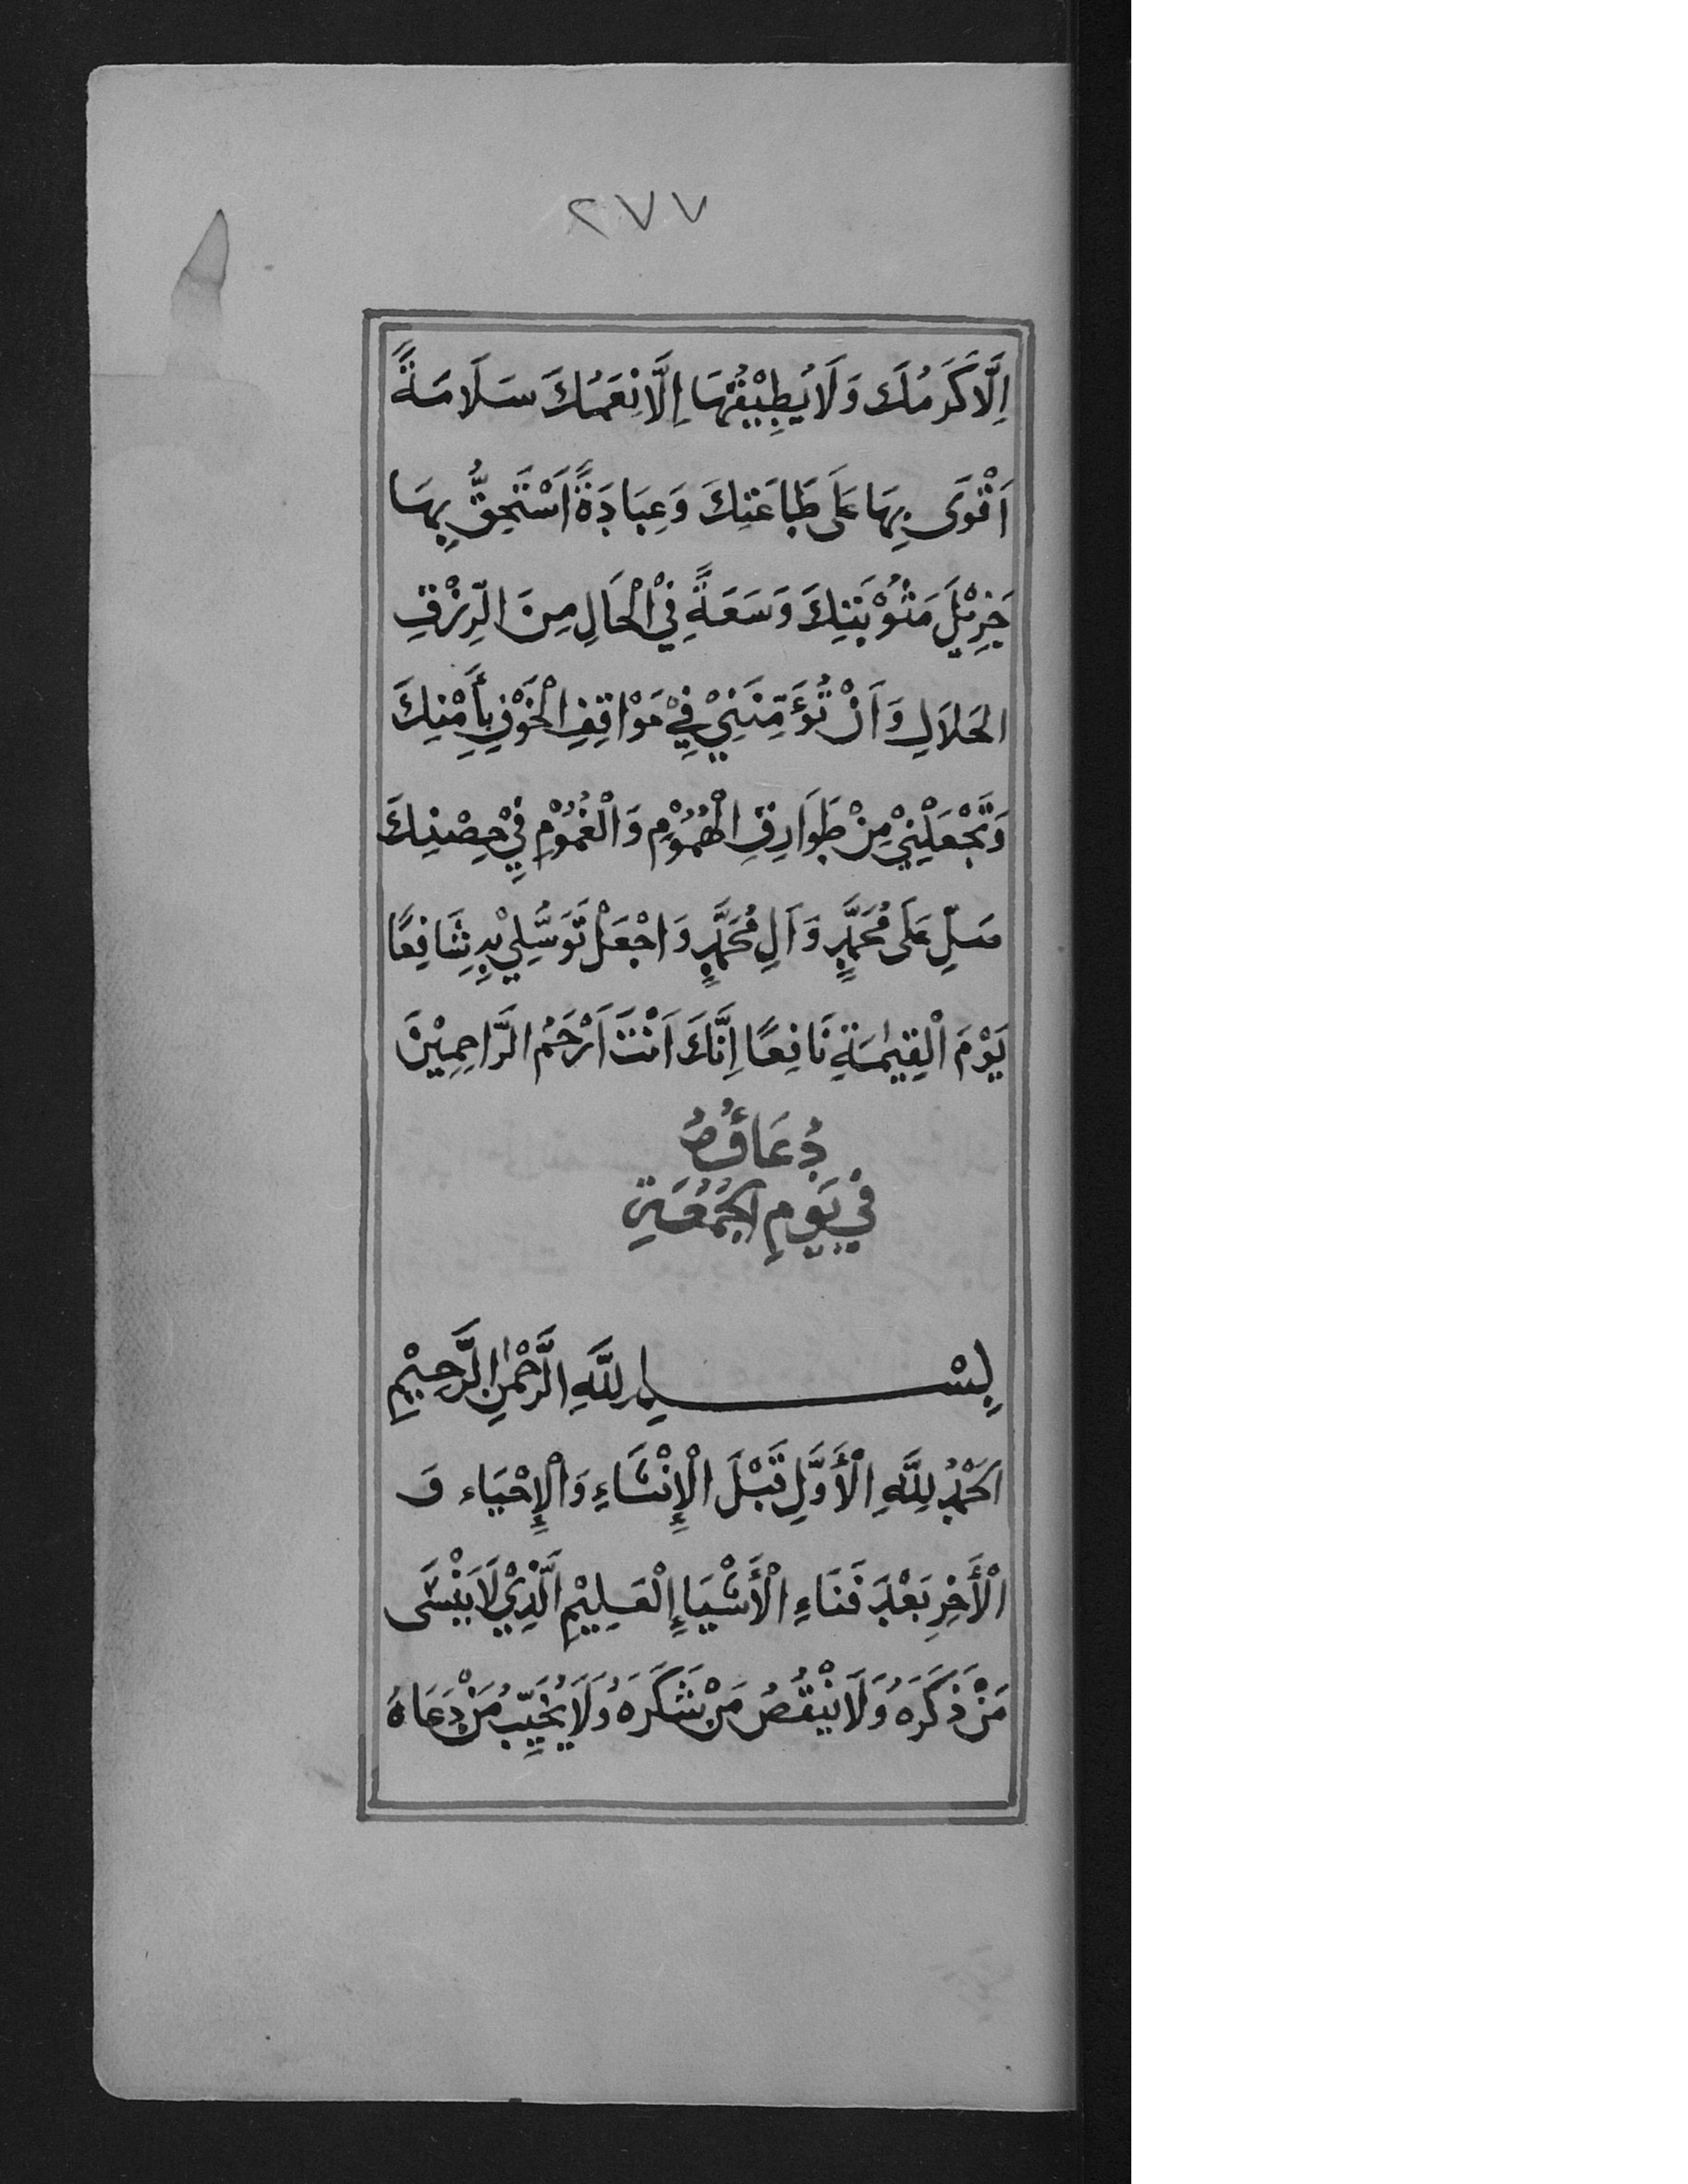 ٢٧٧
اِلَّا كَرَمُكَ وَلَا يُطِيْقُهَا اِلَّا نِعَمُكَ سَلَامَةً
اَقْوَى بِهَا عَلَى طَاعَتِكَ وَعِبَادَةً اَسْتَحِقُّ بِهَا
جَزِيْلَ مَثُوْبَتِكَ وَسَعَةً فِيْ الْحَالِ مِنَ الرِّزْقِ
الحَلَالِ وَاَنْ تُؤَمِّنَنِيْ فِيْ مَوَاقِفِ الْخَوْفِ بِأَمْنِكَ
وَتَجْعَلَنِيْ مِنْ طَوَارِقِ الْهُمُوْمِ وَالْغُمُوْمِ فِيْ حِصْنِكَ
صَلِّ عَلَى مُحَمَّدٍ وَاَلِ مُحَمَّدٍ وَاجْعَلْ تَوَسُّلِيْ بِهِ شَافِعًا
يَوْمَ الْقِيٰمَةِ نَافِعًا اِنَّكَ اَنْتَ اَرْحَمُ الرَّاحِمِيْنَ
دُعَاؤُهُ
فِيْ يَوْمِ الْجُمُعَةِ
بِسْمِ اللَّهِ الرَّحْمٰنِ الرَّحِيْمِ
اَلحَمْدُ لِلَّهِ الْأَوَّلِ قَبْلَ الْإِنْشَاءِ وَالْإِحْيَاء وَ
الْأَخِرِ بَعْدَ فَنَاءِ الْأَشْيَاءِ الْعَلِيْمِ الَّذِيْ لَا يَنْسَى
مَنْ ذَكَرَهُ وَلَا يَنْقُصُ مَنْ شَكَرَهُ وَلَا يُخَيِّبُ مَنْ دَعَاهُ